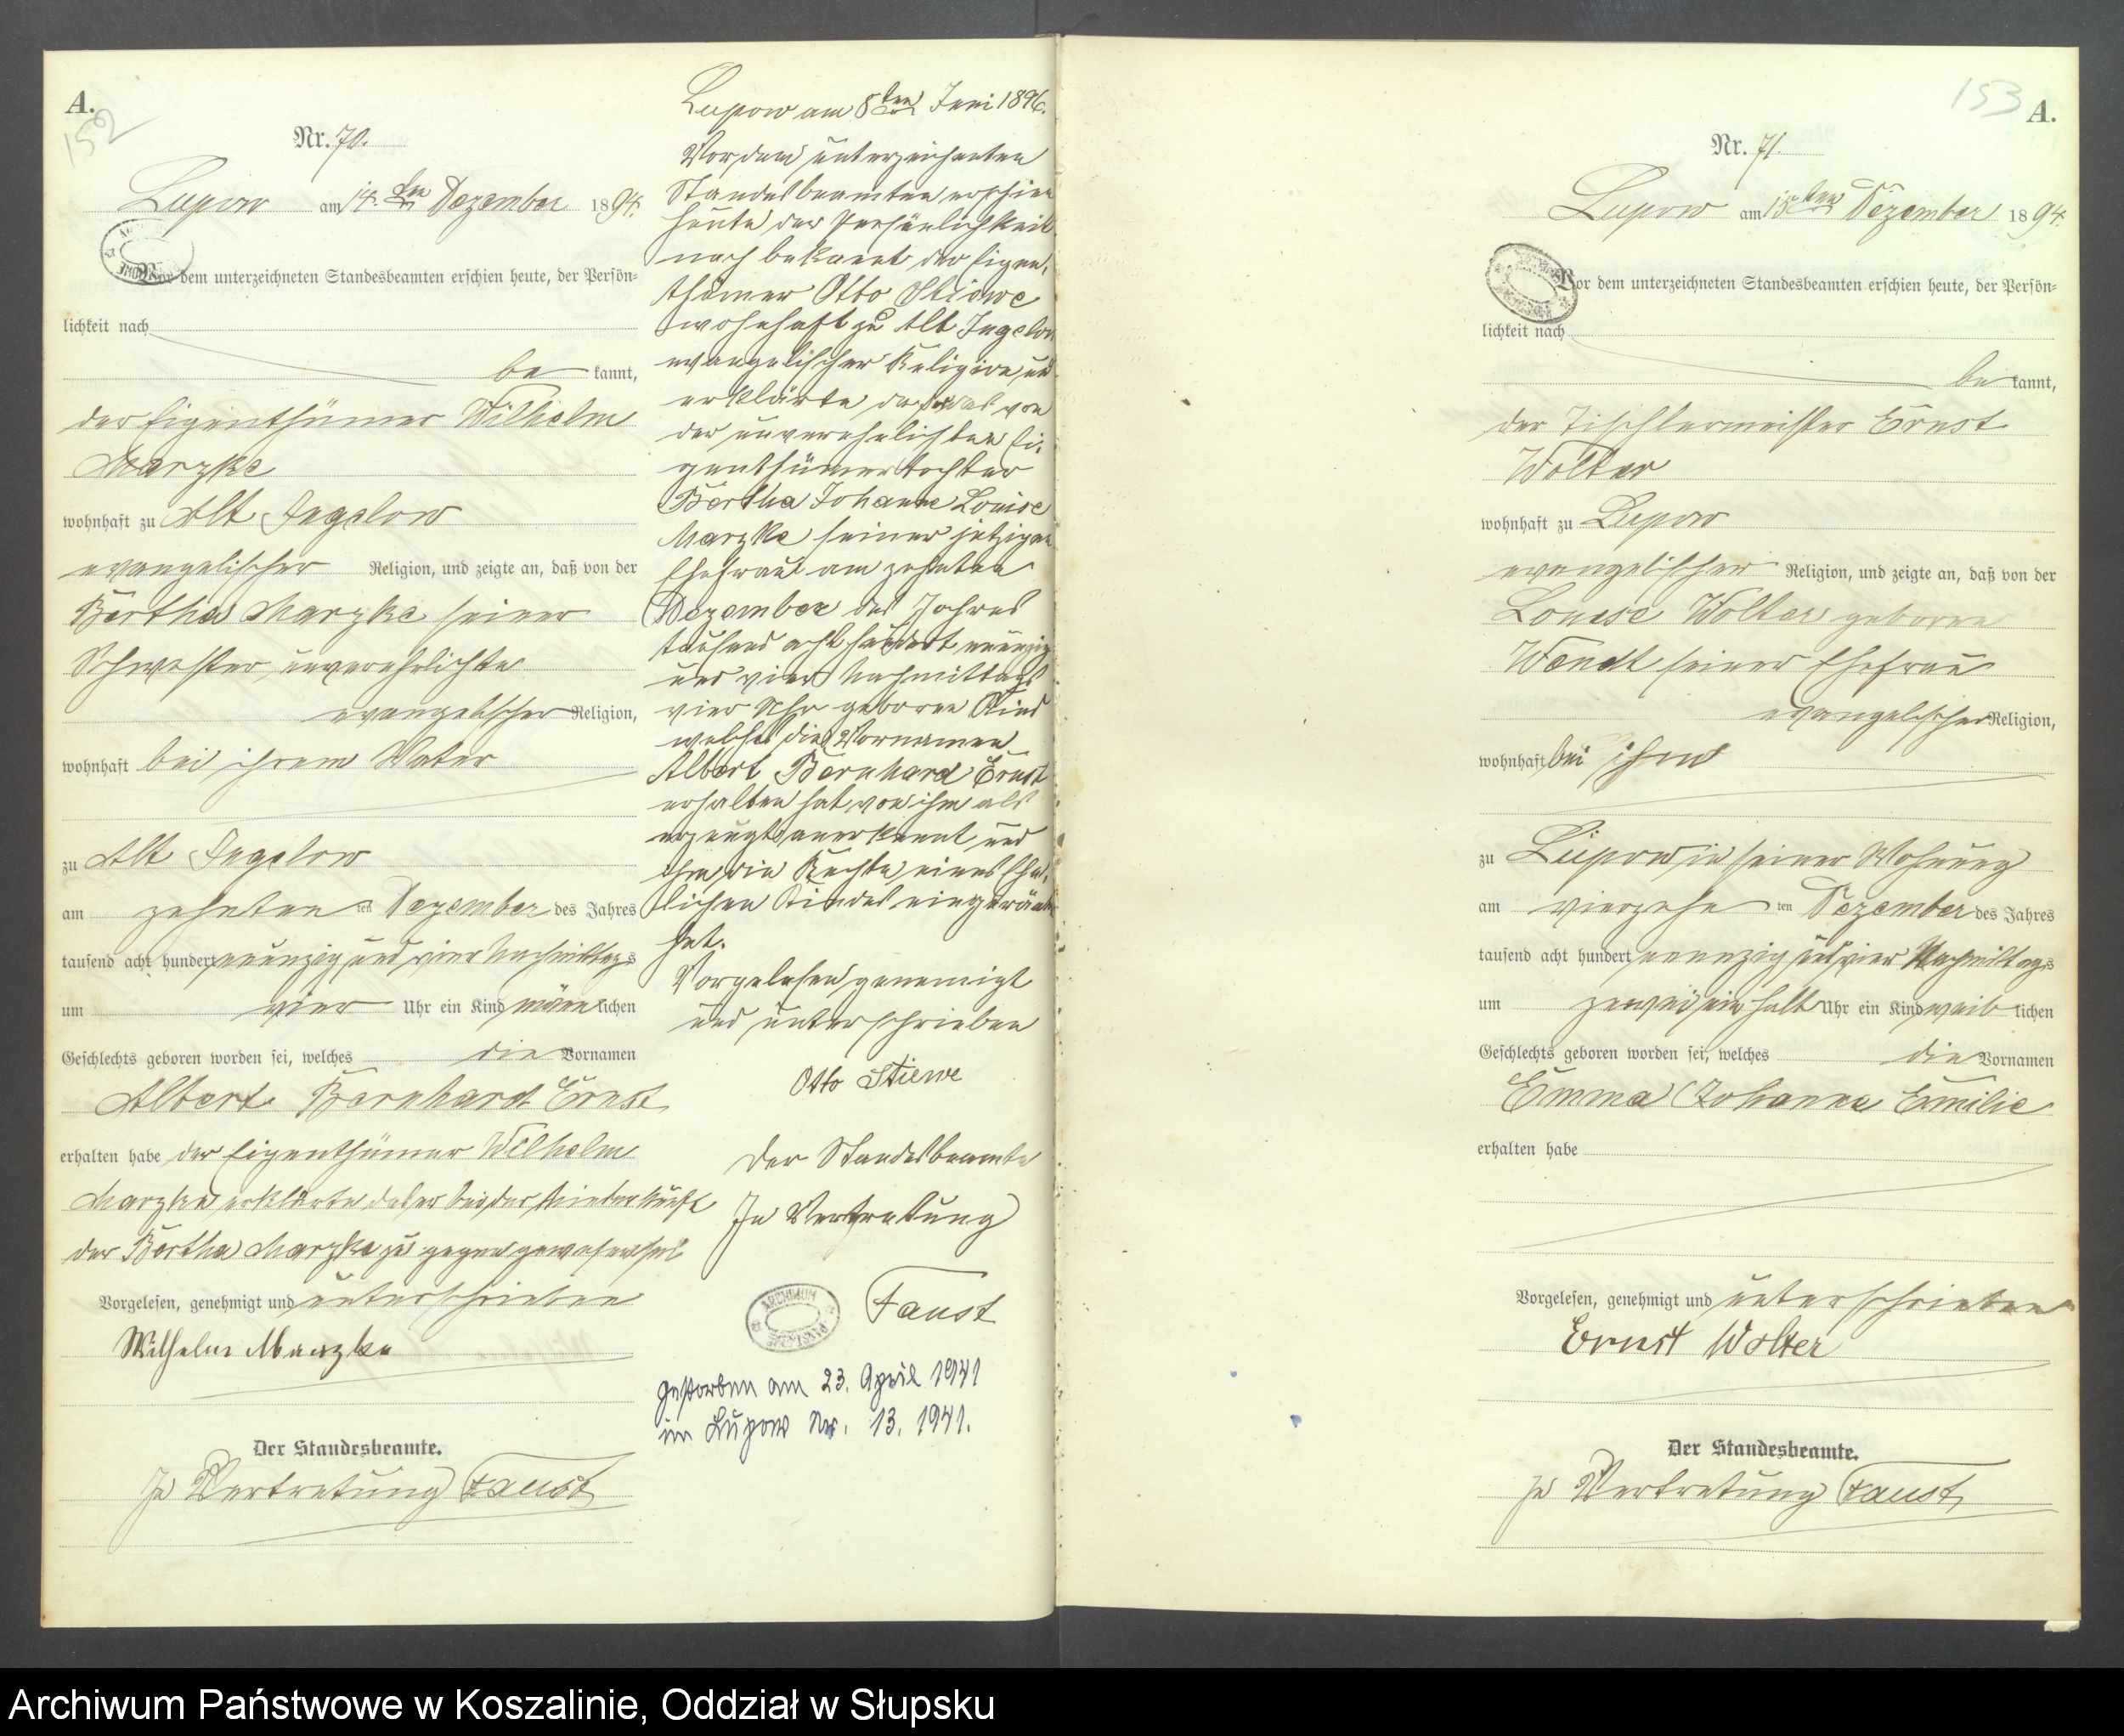 A.
152
Nr. 70.
Lupow am 14. ten Dezember 1894.
Vor dem unterzeichneten Standesbeamten erschien heute, der Persön-
lichkeit nach
be kannt,
der Eigenthümer Wilhelm
Marzke
wohnhaft zu Alt Jugelow
evangelischer Religion, und zeigte an, daß von der
Bertha Marzke seiner
Schwester, unverehelichte
evangelischer Religion,
wohnhaft bei ihrem Vater
zu Alt Jugelow
am zehnten ten Dezember des Jahres
tausend acht hundert neunzig und vier Nachmittags
um vier Uhr ein Kind männ lichen
Geschlechts geboren worden sei, welches die Vornamen
Albert Bernhard Ernst
erhalten habe der Eigenthümer Wilhelm
Marzke erklärte daß er bei der Niederkunft
der Bertha Marzke zu gegen gewesen sei
Vorgelesen, genehmigt und unterschrieben
Wilhelm Marzke
Der Standesbeamte.
In Vertretung Faust
Lupow am 8ten Juni 1896.
Vor dem unterzeichneten
Standesbeamten erschien
heute der Persönlichkeit
nach bekannt der Eigen-
thümer Otto Stiewe
wohnhaft zu Alt Jugelow
evangelischer Religion und
erklärte daß das von
der unverehelichten Ei-
genthümertochter
Bertha Johanne Louise
Marzke seiner jetzigen
Ehefrau am zehnten
Dezember des Jahres
tausend acht hundert neunzig
und vier Nachmittags
vier Uhr geborne Kind
welches die Vornamen
Albert Bernhard Ernst
erhalten hat von ihm als
erzeugt anerkannt und
ihm die Rechte eines Ehe-
lichen Kindes eingeräumt
hat.
Vorgelesen genemigt
und unterschrieben
Otto Stiewe
Der Standesbeamte
In Vertretung
Faust
ARCHIWUM
gestorben am 23. April 1941
in Lupow Nr. 13. 1941.
153
A.
Nr. 71.
Lupow am 15ten Dezember 1894.
Vor dem unterzeichneten Standesbeamten erschien heute, der Persön-
lichkeit nach
be kannt,
der Tischlermeister Ernst
Wolter
wohnhaft zu Lupow
evangelischer Religion, und zeigte an, daß von der
Louise Wolter geborne
Wendt seiner Ehefrau
evangelischer Religion,
wohnhaft bei ihm
zu Lupow in seiner Wohnung
am vierzehn ten Dezember des Jahres
tausend acht hundert neunzig und vier Nachmittags
um zwei ein halb Uhr ein Kind weib lichen
Geschlechts geboren worden sei, welches die Vornamen
Emma Johanna Emilie
erhalten habe
Vorgelesen, genehmigt und unterschrieben
Ernst Wolter
Der Standesbeamte.
In Vertretung Faust
Archiwum Państwowe w Koszalinie, Oddział w Słupsku